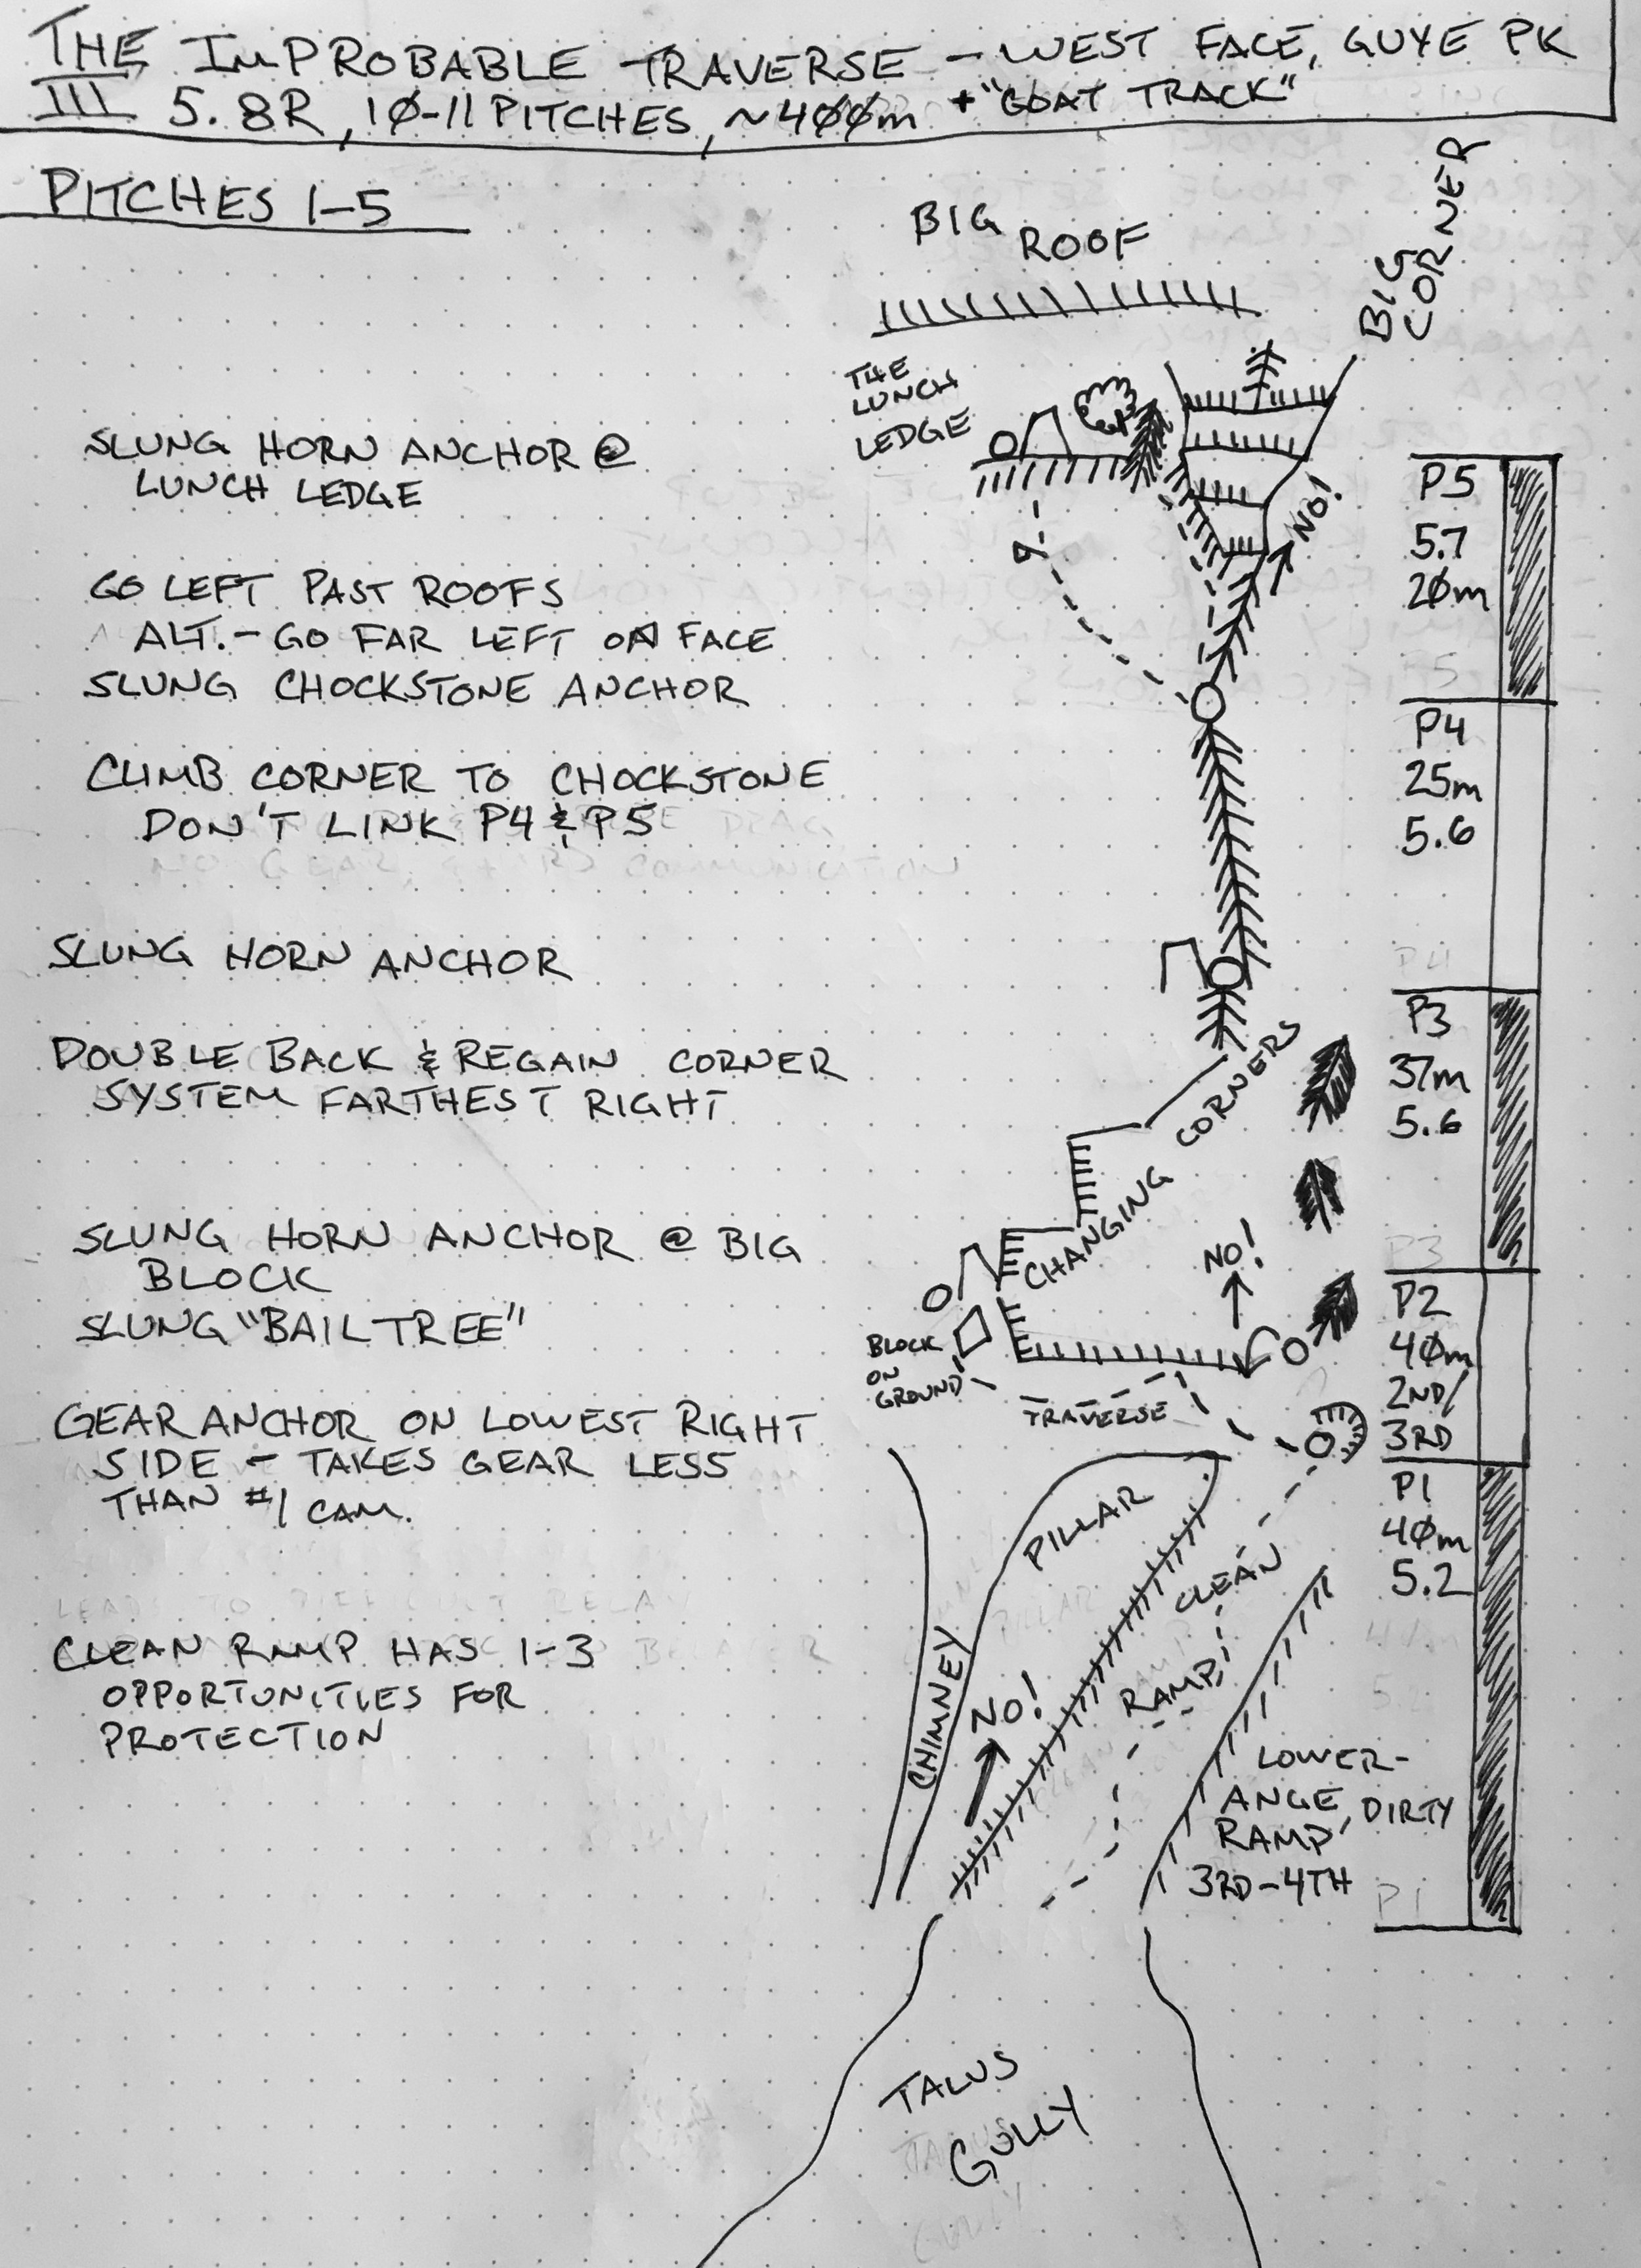 THE IMPROBABLE TRAVERSE - WEST FACE, GUYE PK
III 5.8R, 10-11 PITCHES, ~400m + "GOAT TRACK"
PITCHES 1-5
BIG ROOF
BIG CORNER
THE
LUNCH
LEDGE
SLUNG HORN ANCHOR @
LUNCH LEDGE
NO!
P5
5.7
20m
GO LEFT PAST ROOFS
ALT. - GO FAR LEFT ON FACE
SLUNG CHOCKSTONE ANCHOR
P4
25m
5.6
CLIMB CORNER TO CHOCKSTONE
DON'T LINK P4 & P5
NO GEAR, COMMUNICATION
SLUNG HORN ANCHOR
P4
P3
37m
5.6
DOUBLE BACK & REGAIN CORNER
SYSTEM FARTHEST RIGHT
CHANGING CORNERS
SLUNG HORN ANCHOR @ BIG
BLOCK
SLUNG "BAIL TREE"
NO!
P3
P2
40m
2ND/
3RD
BLOCK
ON
GROUND
TRAVERSE
GEAR ANCHOR ON LOWEST RIGHT
SIDE - TAKES GEAR LESS
THAN #1 CAM.
PILLAR
P1
40m
5.2
CLEAN
RAMP
CHIMNEY
NO!
CLEAN RAMP HAS 1-3
OPPORTUNITIES FOR
PROTECTION
LOWER-
ANGE, DIRTY
RAMP
3RD-4TH
P1
TALUS
GULLY